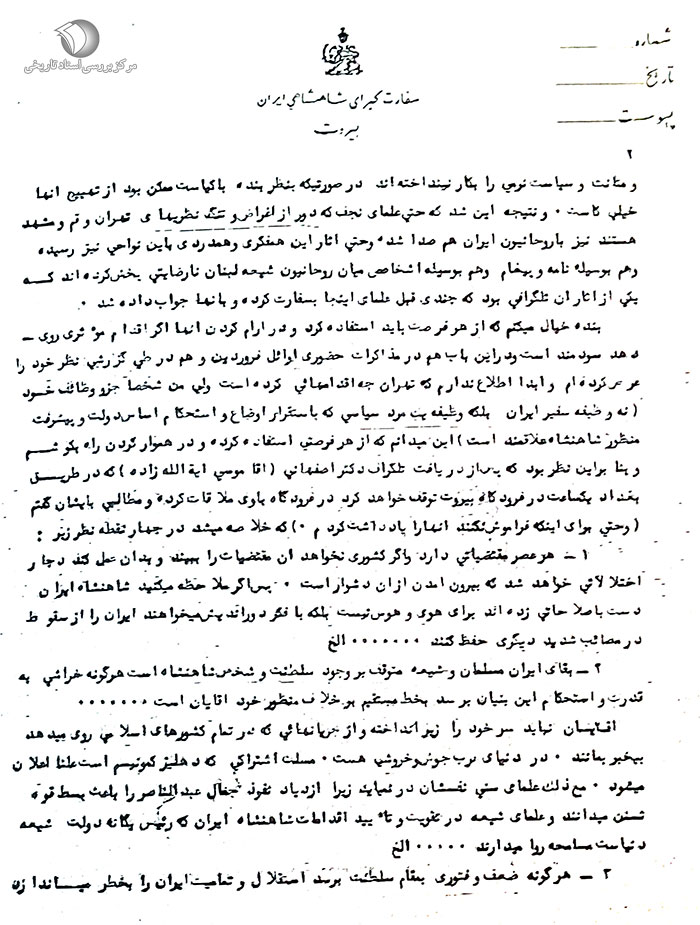 مرکز بررسی اسناد تاریخی
شماره
تاریخ
پیوست
سفارت کبرای شاهنشاهی ایران
بیروت
۲
و متانت و سیاست نرمی را بکار نینداخته اند در صورتیکه بنظر بنده باکیاست ممکن بود از تهییج انها
خیلی کاست ۰ و نتیجه این شد که حتی علمای نجف که دور از اغراض و تنگ نظریهای تهران و قم و مشهد
هستند نیز باروحانیون ایران هم صدا شده و حتی اثار این همفکری و همدردی باین نواحی نیز رسیده
وهم بوسیله نامه و پیغام وهم بوسیله اشخاص میان روحانیون شیعه لبنان نارضایتی پخش کرده اند کـه
یکی از اثار ان تلگرافی بود که چندی قبل علمای اینجا بسفارت کرده و بانها جواب داده شد ۰
بنده خیال میکنم که از هر فرصت باید استفاده کرد و در ارام کردن انها اگر اقدام موثری روی ـ
دهد سودمند است ودراین باب هم در مذاکرات حضوری اوائل فروردین و هم در طی گزارشی نظر خود را
عرض کرده ام و ابدا اطلاع ندارم که تهران چه اقداماتی کرده است ولی من شخصا جزو وظائف خـود
( نه وظیفه سفیر ایران بلکه وظیفه یک مرد سیاسی که باستقرار اوضاع و استحکام اساس دولت و پیشرفت
منظور شاهنشاه علاقمند است ) این میدانم که از هر فرصتی استفاده کرده و در هموار کردن راه بکوشـم
و بنا براین نظر بود که پس از دریافت تلگراف دکتر اصفهانی ( اقا موسی ایة الله زاده ) که در طریـق
بغداد یکساعت در فرودگاه بیروت توقف خواهد کرد در فرودگاه باوی ملاقات کرده و مطالبی بایشان گفتم
( وحتی برای اینکه فراموش نکنند انها را یادداشت کردم ۰ ) که خلاصه میشد در چهار نقطه نظر زیر :
۱ ـ هر عصر مقتضیاتی دارد واگر کشوری نخواهد ان مقتضیات را ببیند و بدان عمل کند دچار
اختلالاتی خواهد شد که بیرون امدن از ان دشوار است ۰ پس اگر ملاحظه میکنید شاهنشاه ایران
دست باصلاحاتی زده اند برای هوی و هوس نیست بلکه با فکر دوراندیش میخواهند ایران را از سقوط
در مصائب شدید دیگری حفظ کنند ۰۰۰۰۰۰۰ الخ
۲ ـ بقای ایران مسلمان و شیعه متوقف بر وجود سلطنت و شخص شاهنشاه است هرگونه خراشی به
قدرت و استحکام این بنیان برسد بخط مستقیم بر خلاف منظور خود اقایان است ۰۰۰۰۰۰۰
اقایان نباید سر خود را زیر انداخته و از جریانهائی که در تمام کشورهای اسلامی روی میدهد
بیخبر بمانند ۰ در دنیای عرب جوش و خروشی هست ۰ مسلک اشتراکی که دهلیز کمونیسم است علنا اعلان
میشود ۰ مع ذلک علمای سنی نفسشان در نمیاید زیرا ازدیاد نفوذ جمال عبدالناصر را باعث بسط قوه
تسنن میدانند و علمای شیعه در تقویت و تائید اقدامات شاهنشاه ایران که رئیس یگانه دولت شیعه
دنیاست مسامحه روا میدارند ۰۰۰۰۰ الخ
۳ ـ هرگونه ضعف و فتوری بمقام سلطنت برسد استقلال و تمامیت ایران را بخطر میاندازد